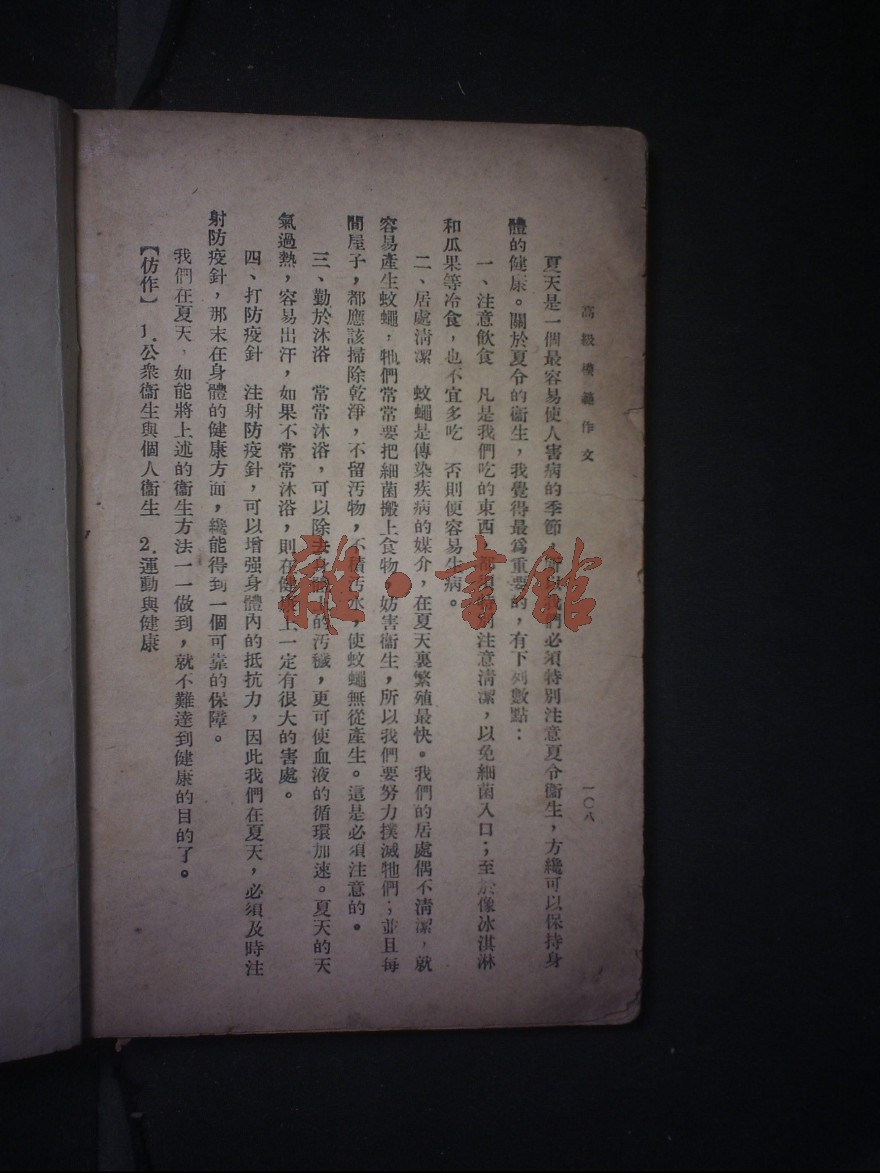 高級模範作文
一〇八
夏天是一個最容易使人害病的季節，所以我們必須特別注意夏令衞生，方纔可以保持身
體的健康。關於夏令的衞生，我覺得最爲重要的，有下列數點：
一、注意飲食　凡是我們吃的東西，都須特別注意清潔，以免細菌入口；至於像冰淇淋
和瓜果等冷食，也不宜多吃　否則便容易生病。
二、居處清潔　蚊蠅是傳染疾病的媒介，在夏天裏繁殖最快。我們的居處偶不清潔，就
容易產生蚊蠅，牠們常常要把細菌搬上食物，妨害衞生，所以我們要努力撲滅牠們；並且每
間屋子，都應該掃除乾淨，不留汚物，不積汚水，使蚊蠅無從產生。這是必須注意的。
三、勤於沐浴　常常沐浴，可以除去身體上的汚穢，更可使血液的循環加速。夏天的天
氣過熱，容易出汗，如果不常常沐浴，則在健康上一定有很大的害處。
四、打防疫針　注射防疫針，可以增强身體內的抵抗力，因此我們在夏天，必須及時注
射防疫針，那末在身體的健康方面，纔能得到一個可靠的保障。
我們在夏天，如能將上述的衞生方法一一做到，就不難達到健康的目的了。
【仿作】　1.公衆衞生與個人衞生　2.運動與健康
雜·書館